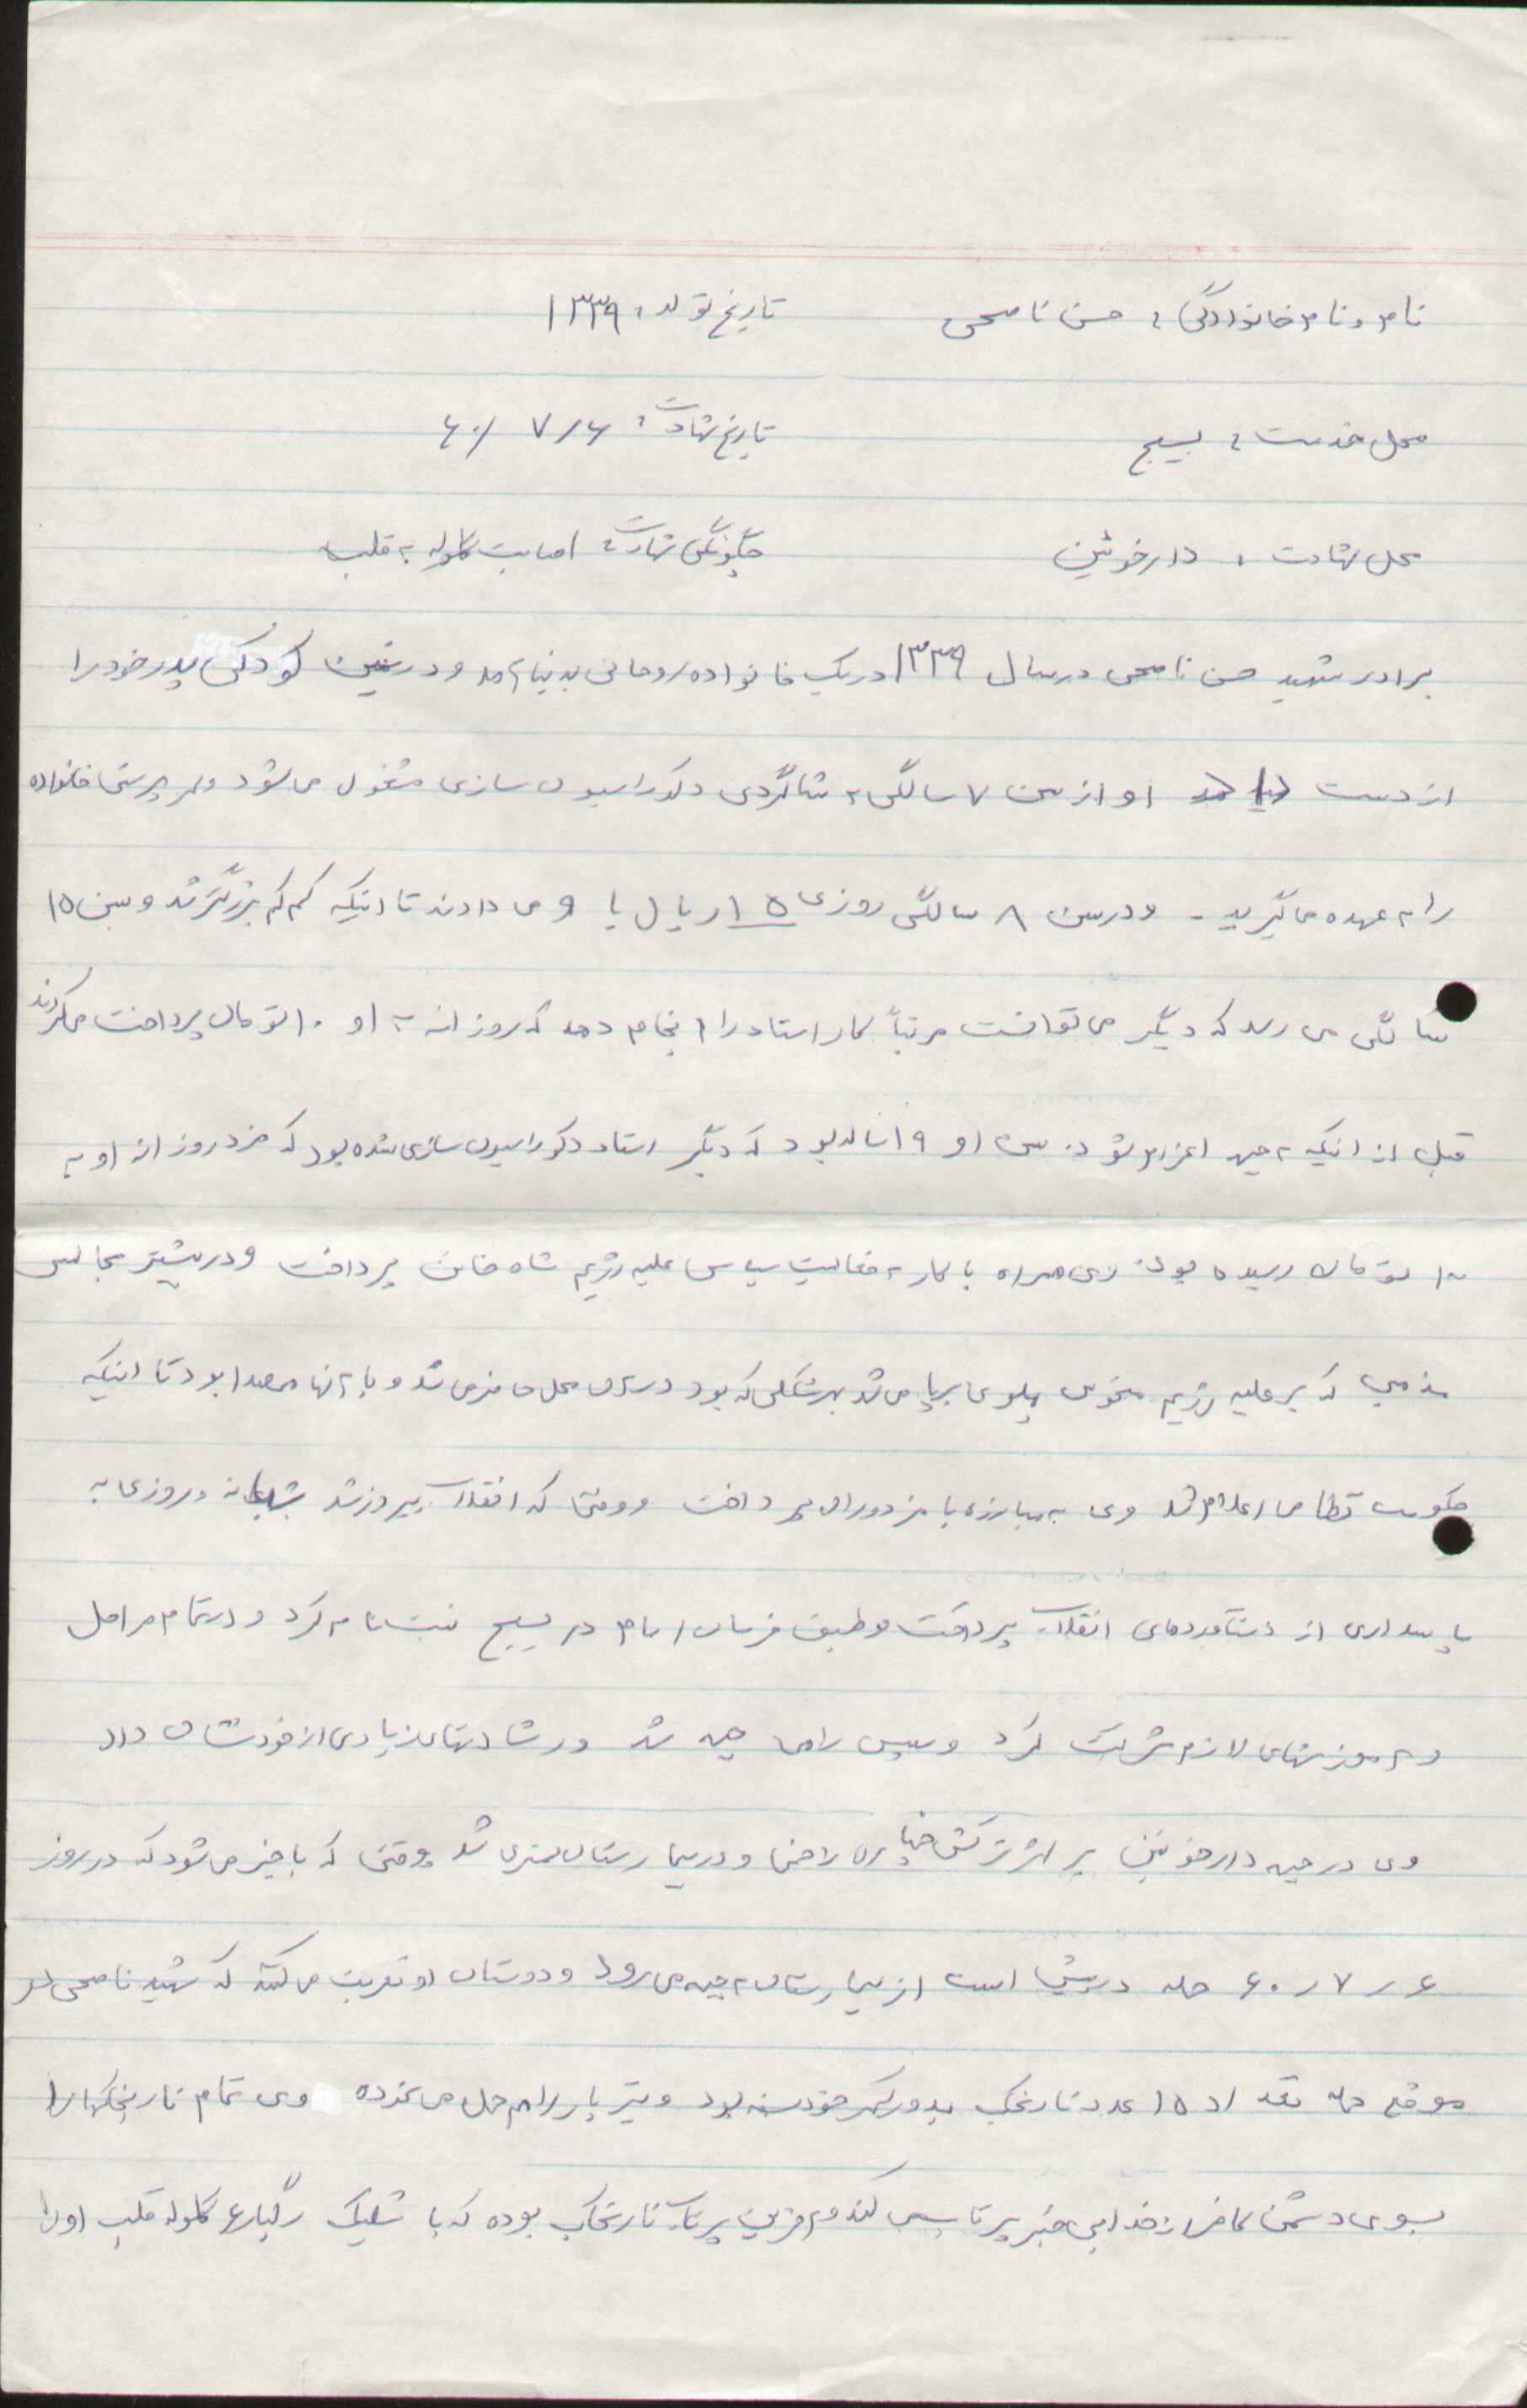 نام و نام خانوادگی : حسن ناصحی تاریخ تولد : ۱۳۳۹
محل خدمت : بسیج تاریخ شهادت : ۶۰/ ۷/۶
محل شهادت : دارخوئین چگونگی شهادت : اصابت گلوله به قلب
برادر شهید حسن ناصحی در سال ۱۳۳۹ در یک خانواده روحانی بدنیا آمد و در سنین کودکی پدر خود را
از دست داد او از سن ۷ سالگی به شاگردی دکوراسیون سازی مشغول می شود و سرپرستی خانواده
را به عهده می گیرید - و در سن ۸ سالگی روزی ۱۵ ریال با و می دادند تا اینکه کم کم بزرگتر شد و بسن ۱۵
سالگی می رسد که دیگر می توانست مرتباً کار استاد را انجام دهد که روزانه به او ۱۰ تومان پرداخت میکردند
قبل از اینکه به جبهه اعزام شود سن او ۱۹ ساله بود که دیگر استاد دکوراسیون سازی شده بود که مزد روزانه او به
تومان رسیده بود. وی همراه با کار به فعالیت سیاسی علیه رژیم شاه خائن پرداخت و در بیشتر مجالس
مذهبی که بر علیه رژیم منحوس پهلوی برپا می شد بهر شکلی که بود در آن محل حاضر می شد و با آنها همصدا بود تا اینکه
حکومت نظامی اعلام شد وی به مبارزه با مزدوران پرداخت و وقتی که انقلاب پیروز شد شبانه روزی به
پاسداری از دستآوردهای انقلاب پرداخت و طبق فرمان امام در بسیج ثبت نام کرد و در تمام مراحل
و آموزشهای لازم شرکت کرد و سپس راهی جبهه شد و رشادتهای زیادی از خود نشان داد
وی در جبهه دارخوئین بر اثر ترکش خمپاره زخمی و در بیمارستان بستری شد وقتی که باخبر می شود که در روز
۶ ر ۷ ر ۶۰ حمله در پیش است از بیمارستان به جبهه می رود و دوستان او تعریف می کنند که شهید ناصحی در
موقع حمله تعداد ۱۵ عدد نارنجک بدور کمر خود بسته بود و تیربار را هم حمل می نموده وی تمام نارنجکها را
بسوی دشمن کافر از خدا بی خبر پرتاب می کند و آخرین پرتاب نارنجک بوده که با شلیک رگبار گلوله قلب او را